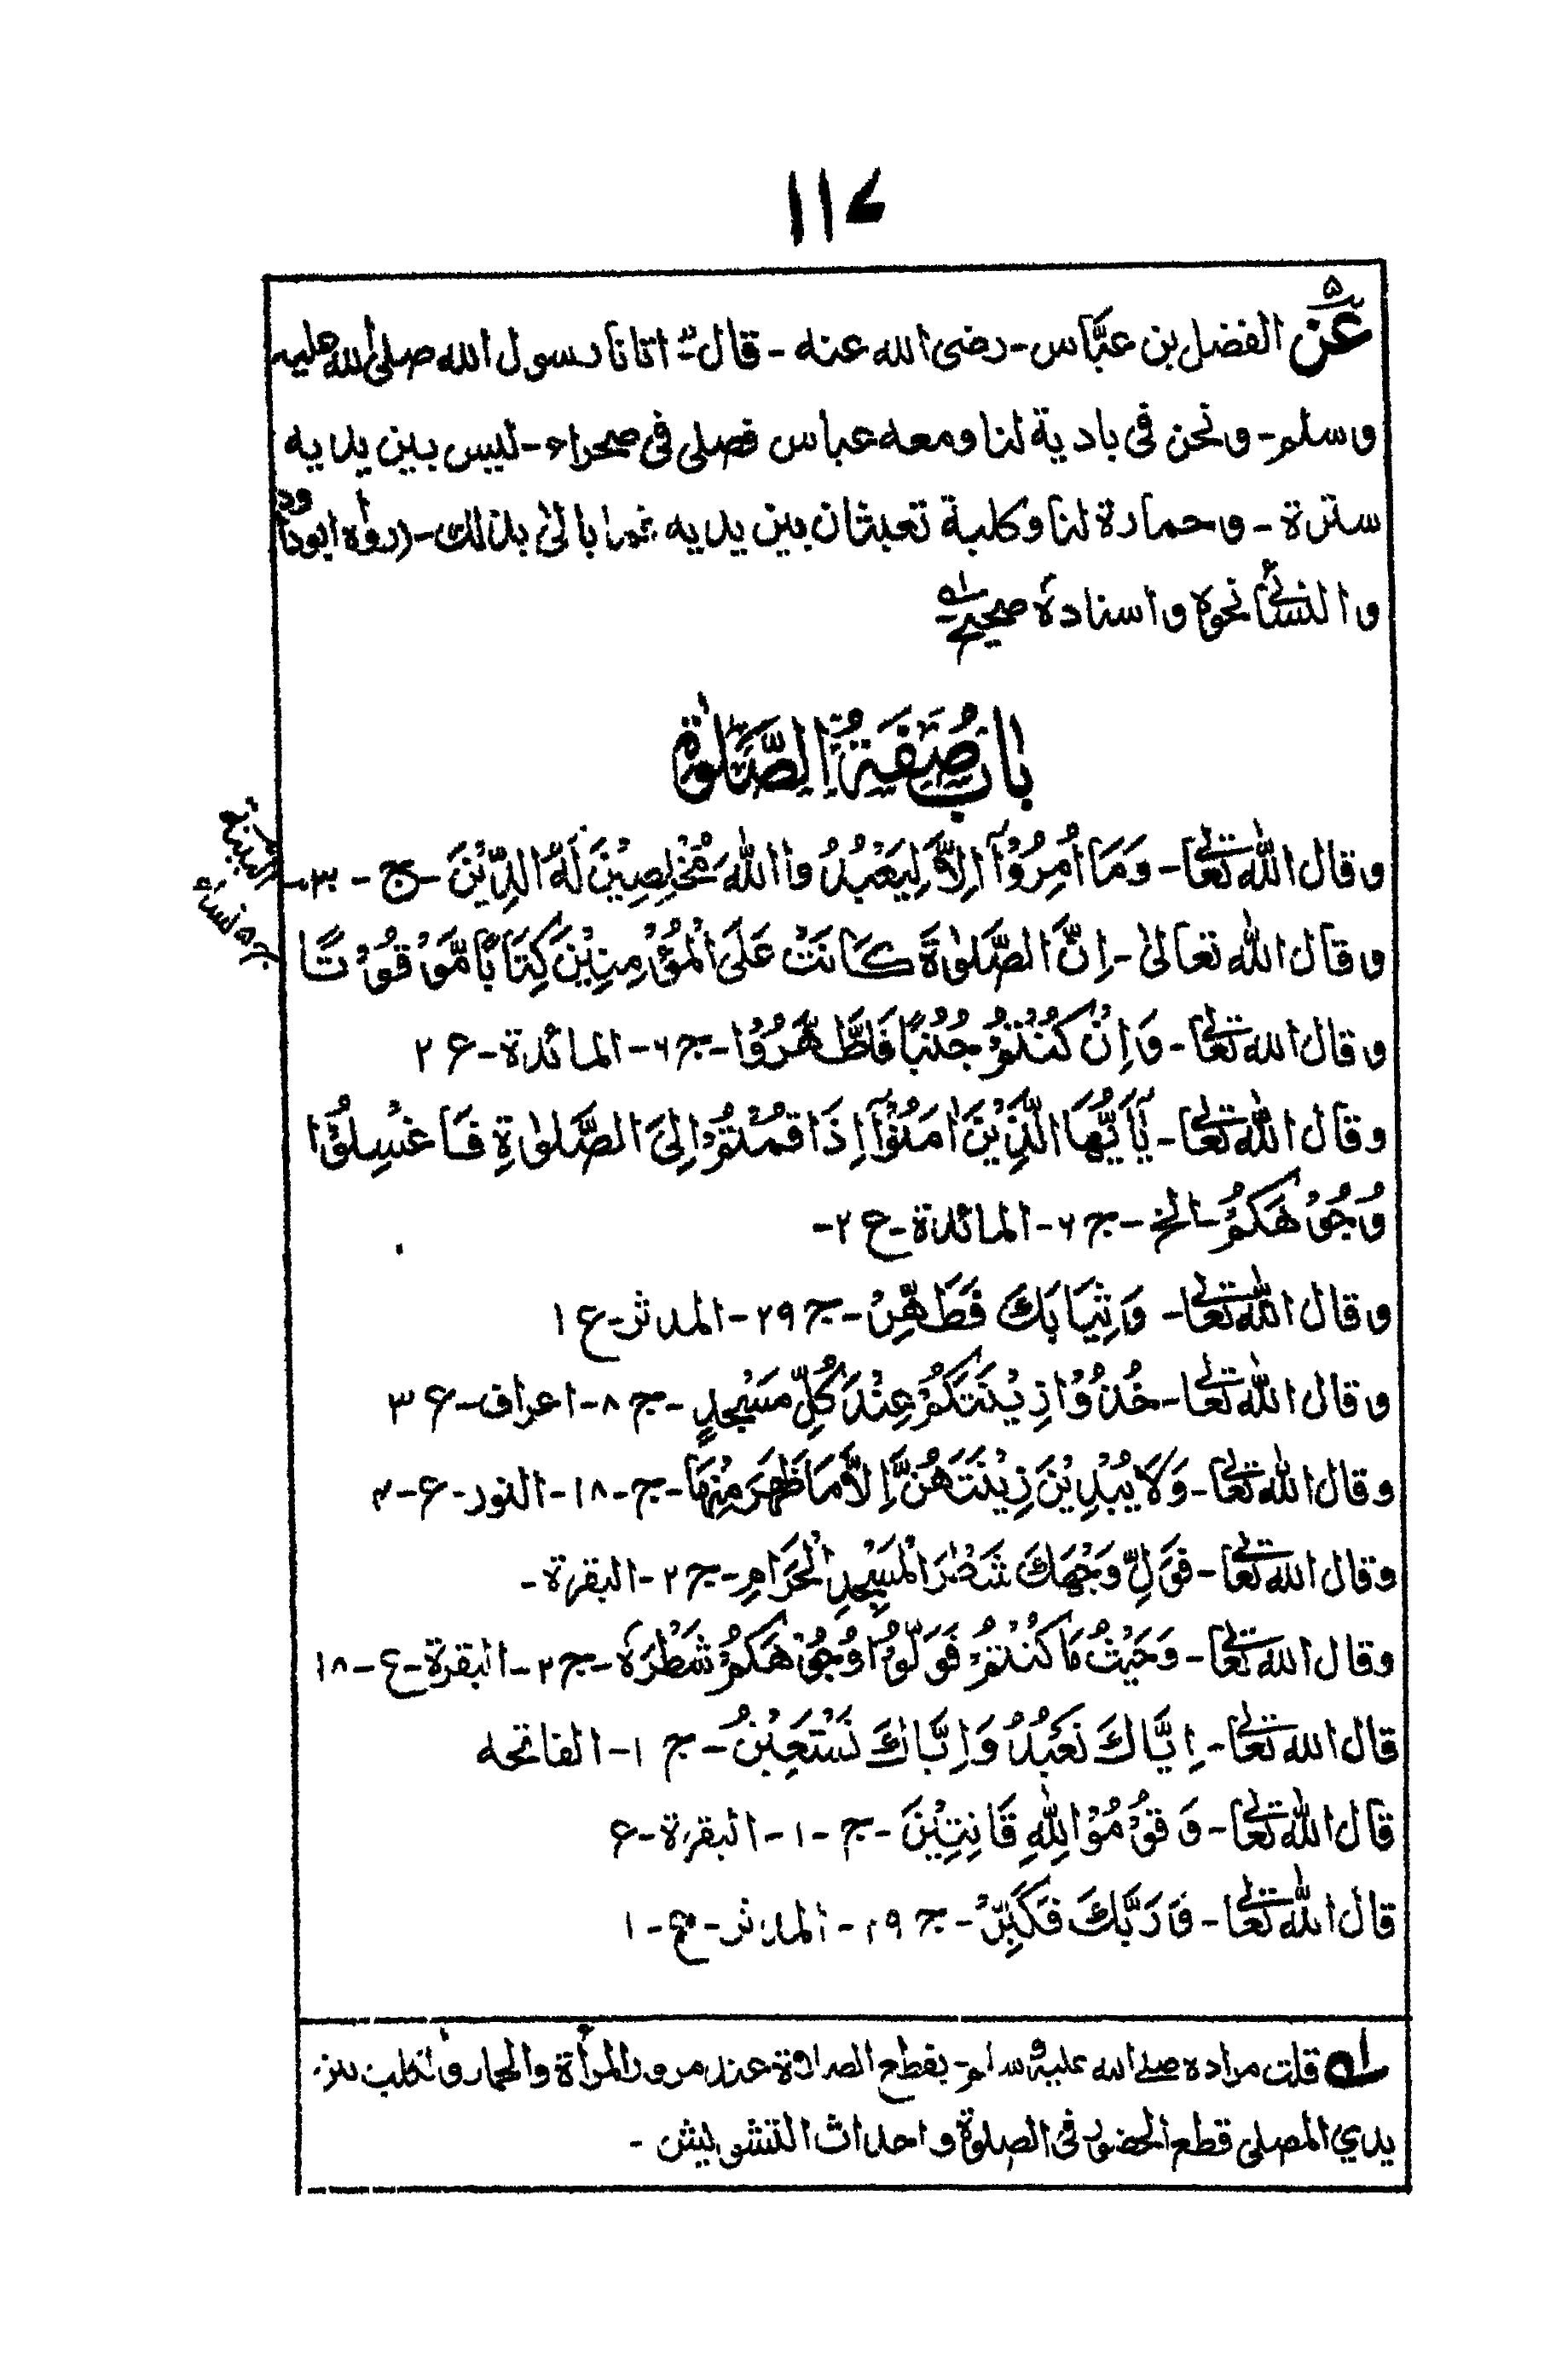 ۱۱۷
عن الفضل بن عبّاس - رضی الله عنه - قال : اتانا رسول الله صلی الله علیه
وسلم - ونحن فی بادیة لنا ومعه عباس فصلی فی صحراء - لیس بین یدیه
سترة - وحمارة لنا وکلبة تعبثان بین یدیه فما بالیٰ بذالك - (رواه ابوداود
والنسائی نحوه واسنادهٗ صحیح
باب صِفَةِ الصَّلٰوة
وقال الله تعالی - وَمَا اُمِرُوْٓا اِلَّا لِیَعْبُدُ وا اللهَ مُخْلِصِیْنَ لَهُ الدِّیْنَ - ج - ۳۰ - البینة
وقال الله تعالیٰ - اِنَّ الصَّلٰوةَ کَانَتْ عَلَی الْمُؤْمِنِیْنَ کِتَابًا مَّوْقُوْتًا ج ۵ نساء
وقال الله تعالی - وَاِنْ کُنْتُمْ جُنُبًا فَاطَّهَّرُوْا - ج ۶ - المائدة - ع ۲
وقال الله تعالی - یٰٓاَیُّهَا الَّذِیْنَ اٰمَنُوْٓا اِذَا قُمْتُمْ اِلَی الصَّلٰوةِ فَاغْسِلُوْا
وُجُوْهَکُمْ - الخ - ج ۶ - المائدة - ع ۲ -
وقال الله تعالی - وَثِیَابَكَ فَطَهِّرْ - ج ۲۹ - المدثر - ع ۱
وقال الله تعالی - خُذُوْا زِیْنَتَکُمْ عِنْدَ کُلِّ مَسْجِدٍ - ج ۸ - اعراف - ع ۳
وقال الله تعالی - وَلَا یُبْدِیْنَ زِیْنَتَهُنَّ اِلَّا مَا ظَهَرَ مِنْهَا - ج - ۱۸ - النور - ع - ۴
وقال الله تعالی - فَوَلِّ وَجْهَكَ شَطْرَ الْمَسْجِدِ الْحَرَامِ - ج ۲ - البقرة -
وقال الله تعالی - وَحَیْثُ مَا کُنْتُمْ فَوَلُّوْا وُجُوْهَکُمْ شَطْرَهٗ - ج ۲ - البقرة - ع - ۱۸
قال الله تعالی - اِیَّاكَ نَعْبُدُ وَاِیَّاكَ نَسْتَعِیْنُ - ج ۱ - الفاتحه
قال الله تعالی - وَقُوْمُوْا لِلّٰهِ قَانِتِیْنَ - ج - ۱ - البقرة - ع
قال الله تعالی - وَرَبَّكَ فَکَبِّرْ - ج ۲۹ - المدثر - ع - ۱
له قلت مراده صلی الله علیه وسلم - یقطع الصلاوة عند مرور المرأة والحمار والکلب بین
یدي المصلی قطع الحضور فی الصلوة واحداث التشویش -